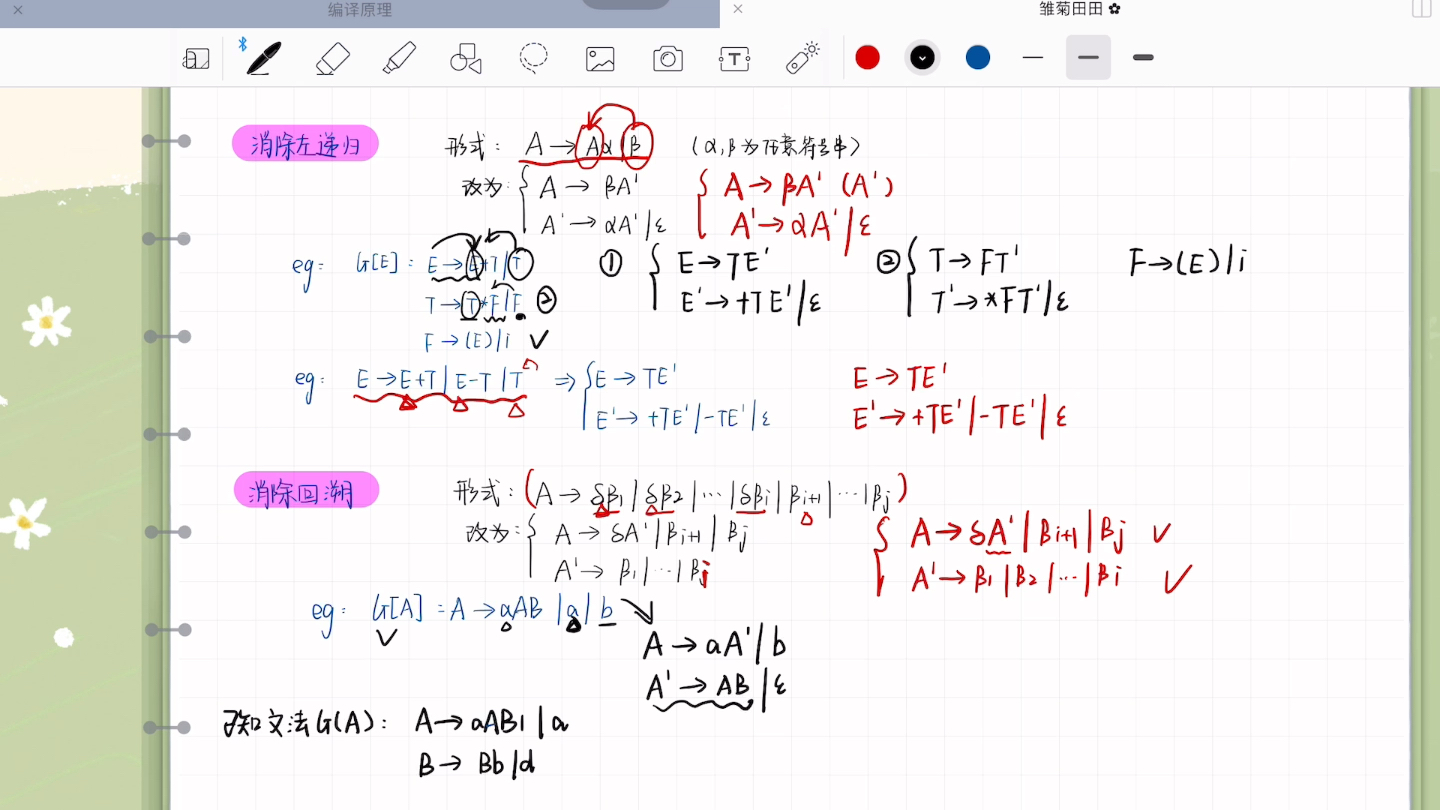 编译原理
雏菊田田 ✿
消除左递归 形式: A→Aα|β (α,β为任意符号串)
改为: A→βA' A→βA' (A')
A'→αA'|ε A'→αA'|ε
eg: G[E]: E→E+T|T ① E→TE' ② T→FT' F→(E)|i
T→T*F|F ② E'→+TE'|ε T'→*FT'|ε
F→(E)|i ✓
eg: E→E+T|E-T|T ⇒ E→TE' E→TE'
E'→+TE'|-TE'|ε E'→+TE'|-TE'|ε
消除回溯 形式: (A→δβ1|δβ2|…|δβi|βi+1|…|βj)
改为: A→δA'|βi+1|βj A→δA'|βi+1|βj ✓
A'→β1|…|βj A'→β1|β2|…|βi ✓
eg: G[A]=A→aAB|a|b
✓
A→aA'|b
A'→AB|ε
已知文法G(A): A→aAB1|a
B→Bb|d